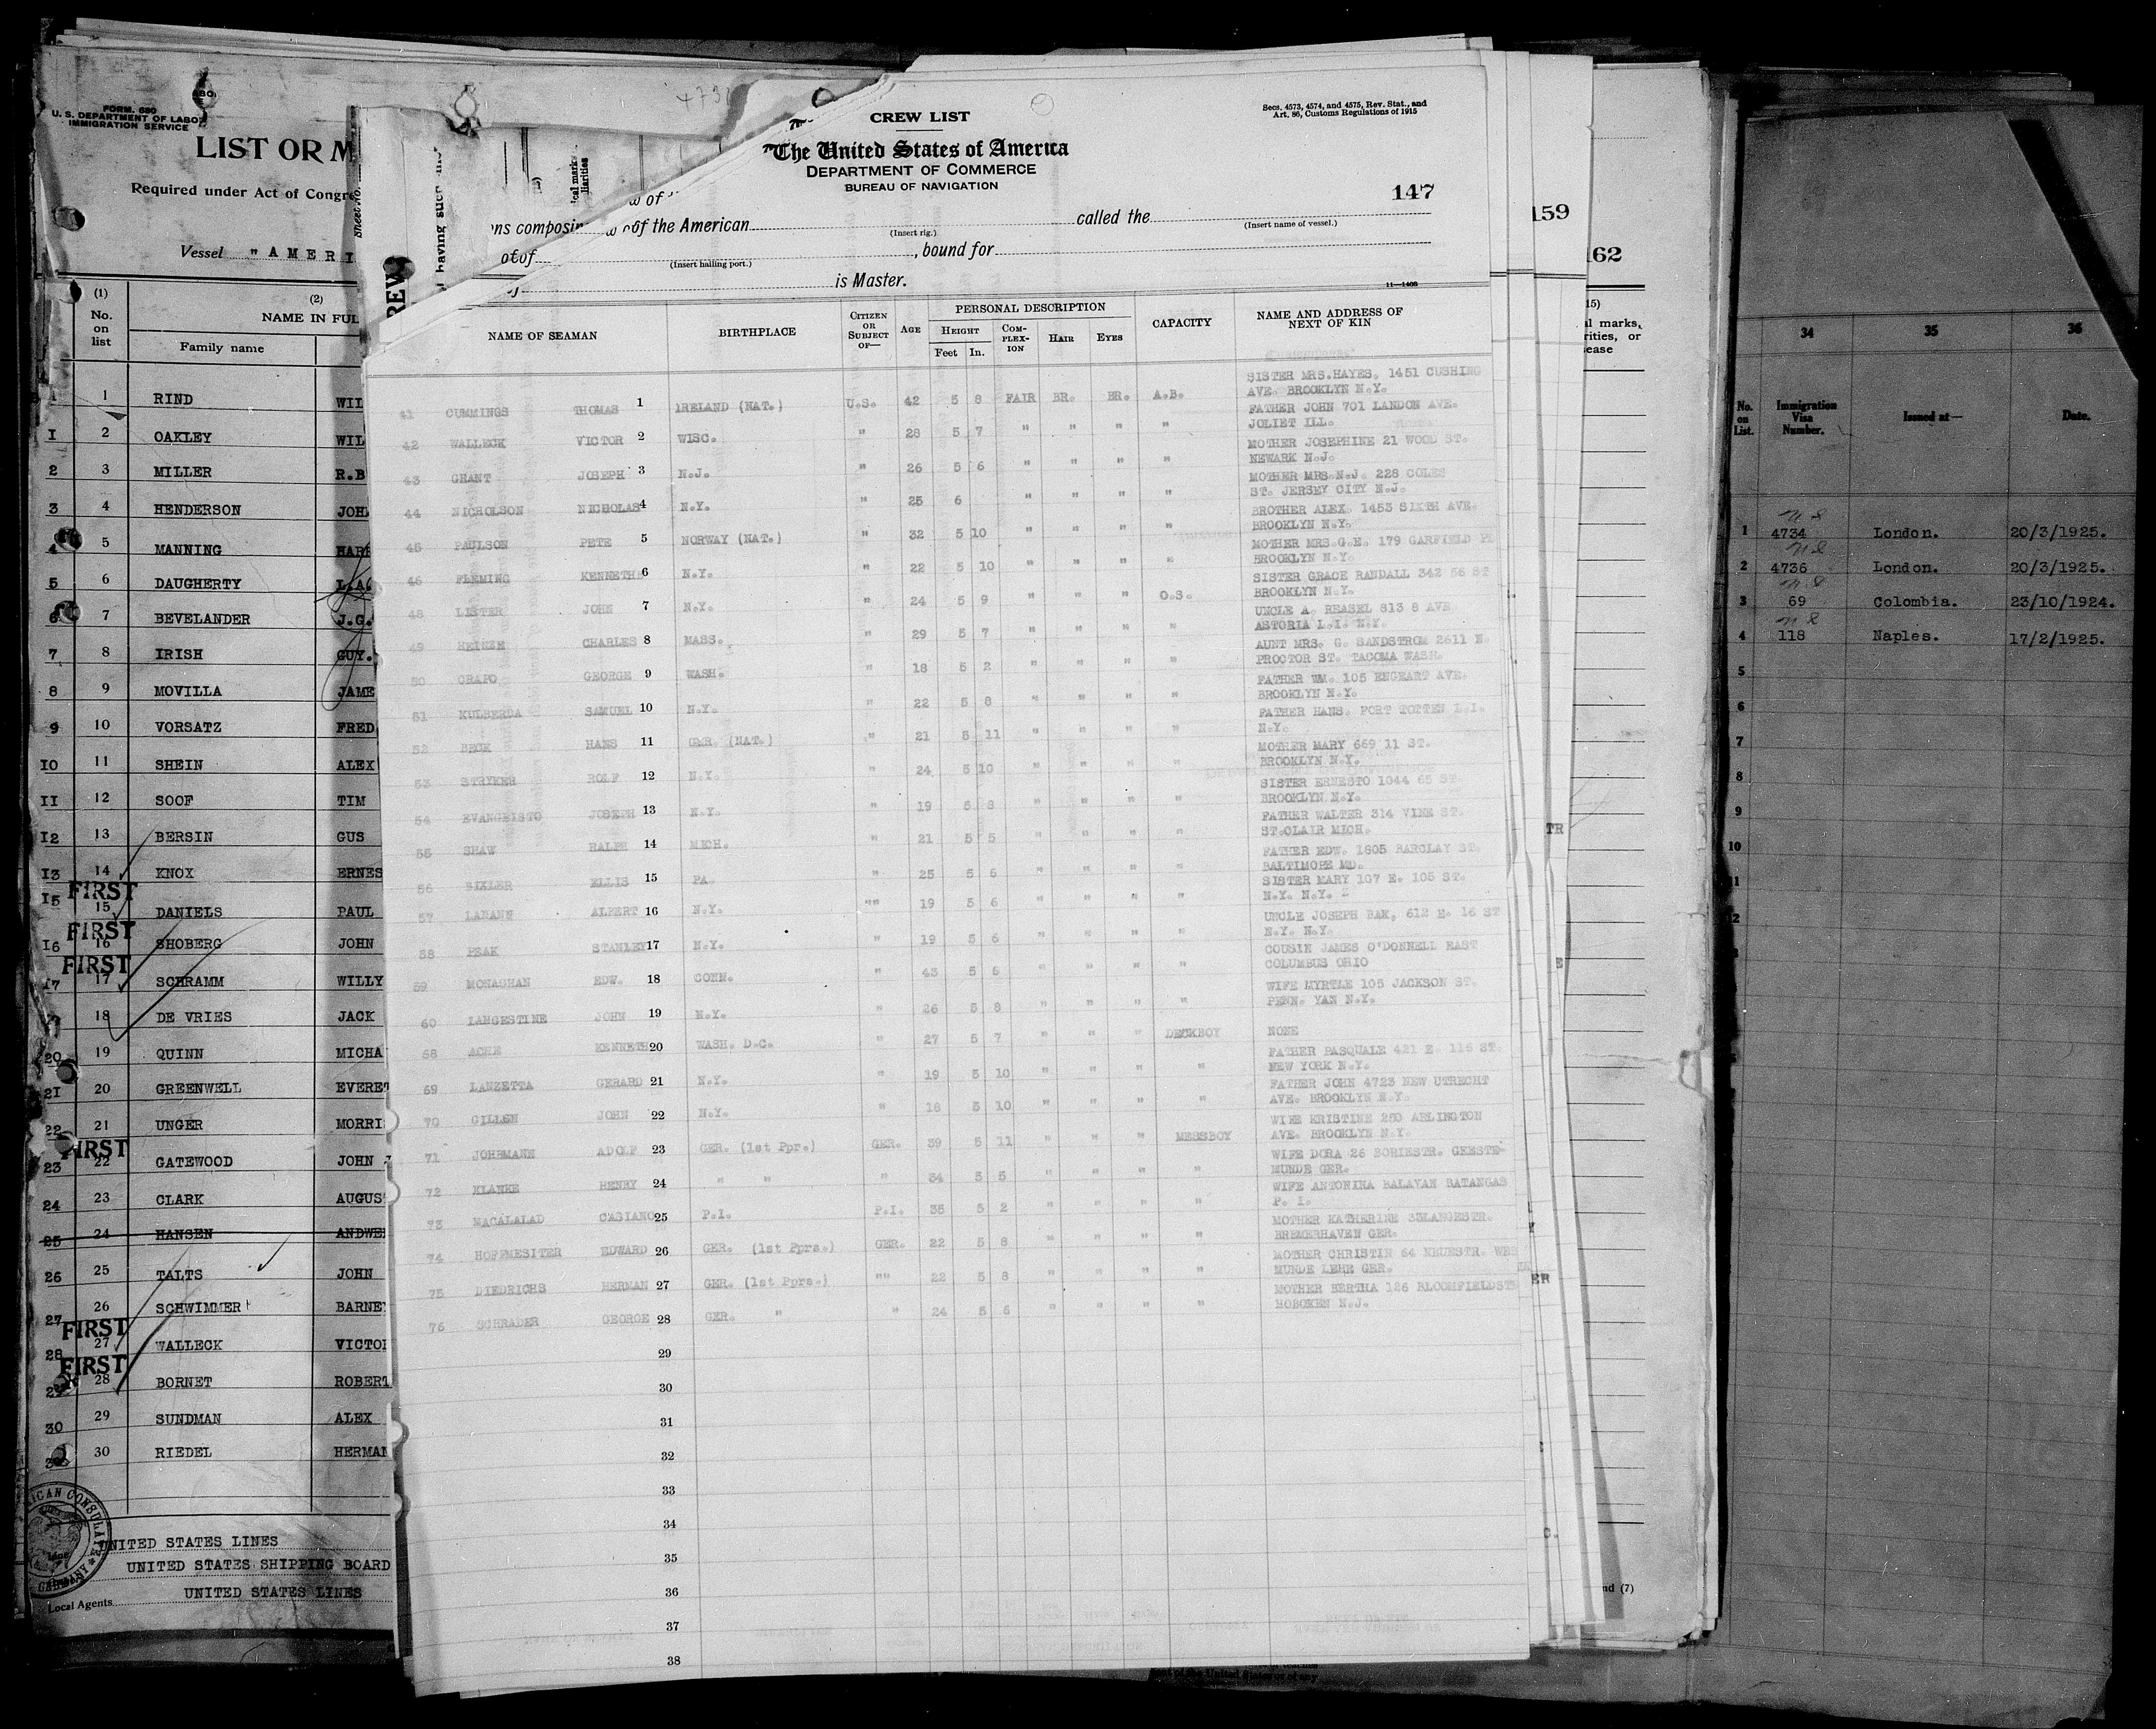 FORM. 680
U. S. DEPARTMENT OF LABOR
IMMIGRATION SERVICE
LIST OR M
Required under Act of Congre
Vessel "AMERI
(1) (2)
No. on list NAME IN FUL
Family name
1 RIND WIL
1 2 OAKLEY WIL
2 3 MILLER R.B
3 4 HENDERSON JOH
4 5 MANNING HAR
5 6 DAUGHERTY L.A
6 7 BEVELANDER J.G.
7 8 IRISH GUY.
8 9 MOVILLA JAME
9 10 VORSATZ FRED
10 11 SHEIN ALEX
11 12 SOOF TIM
12 13 BERSIN GUS
13 14 KNOX ERNES
FIRST
15 15 DANIELS PAUL
FIRST
16 16 SHOBERG JOHN
FIRST
17 17 SCHRAMM WILLY
18 DE VRIES JACK
20 19 QUINN MICHA
21 20 GREENWELL EVERET
22 21 UNGER MORRI
FIRST
23 22 GATEWOOD JOHN
24 23 CLARK AUGUS
25 24 HANSEN ANDWE
26 25 TALTS JOHN
27 26 SCHWIMMER BARNE
FIRST
28 27 WALLECK VICTO
FIRST
28 BORNET ROBERT
30 29 SUNDMAN ALEX
30 RIEDEL HERMAN
UNITED STATES LINES
UNITED STATES SHIPPING BOARD
UNITED STATES LINES
Local Agents
Sheet No.
having such
CREW
CREW LIST
Secs. 4573, 4574, and 4575, Rev. Stat., and
Art. 86, Customs Regulations of 1915
The United States of America
DEPARTMENT OF COMMERCE
BUREAU OF NAVIGATION
147
of the American called the
(Insert rig.) (Insert name of vessel.)
of , bound for
(Insert hailing port.)
is Master.
11—1408
NAME OF SEAMAN BIRTHPLACE CITIZEN OR SUBJECT OF— AGE PERSONAL DESCRIPTION CAPACITY NAME AND ADDRESS OF NEXT OF KIN
HEIGHT COMPLEXION HAIR EYES
Feet In.
41 CUMMINGS THOMAS 1 IRELAND (NAT.) U.S. 42 5 8 FAIR BR. BR. A.B. SISTER MRS.HAYES. 1451 CUSHING
AVE. BROOKLYN N.Y.
42 WALLECK VICTOR 2 WISC. " 28 5 7 " " " " FATHER JOHN 701 LANDON AVE.
JOLIET ILL.
43 GRANT JOSEPH 3 N.J. " 26 5 6 " " " " MOTHER JOSEPHINE 21 WOOD ST.
NEWARK N.J.
44 NICHOLSON NICHOLAS 4 N.Y. " 25 6 " " " " MOTHER MRS.N.J. 228 COLES
ST. JERSEY CITY N.J.
45 PAULSON PETE 5 NORWAY (NAT.) " 32 5 10 " " " " BROTHER ALEX. 1453 SIXTH AVE.
BROOKLYN N.Y.
46 FLEMING KENNETH 6 N.Y. " 22 5 10 " " " " MOTHER MRS.G.E. 179 GARFIELD PL
BROOKLYN N.Y.
48 LISTER JOHN 7 N.Y. " 24 5 9 " " " O.S. SISTER GRACE RANDALL 342 56 ST
BROOKLYN N.Y.
49 HEINZE CHARLES 8 MASS. " 29 5 7 " " " " UNCLE A. REASEL 813 8 AVE.
ASTORIA L.I. N.Y.
50 CRAPO GEORGE 9 WASH. " 18 5 2 " " " " AUNT MRS. G. SANDSTROM 2611 N.
PROCTOR ST. TACOMA WASH.
51 KULBERDA SAMUEL 10 N.Y. " 22 5 8 " " " " FATHER WM. 105 ENGEART AVE.
BROOKLYN N.Y.
52 BECK HANS 11 GER. (NAT.) " 21 5 11 " " " " FATHER HANS. FORT TOTTEN L.I.
N.Y.
53 STRYKER ROLF 12 N.Y. " 24 5 10 " " " " MOTHER MARY 669 11 ST.
BROOKLYN N.Y.
54 EVANGEISTO JOSEPH 13 N.Y. " 19 5 8 " " " " SISTER ERNESTO 1044 65 ST
BROOKLYN N.Y.
55 SHAW RALPH 14 MICH. " 21 5 5 " " " " FATHER WALTER 314 VINE ST.
ST.CLAIR MICH.
56 SIXLER ELLIS 15 PA. " 25 5 6 " " " " FATHER EDW. 1805 BARCLAY ST.
BALTIMORE MD.
57 LAMANN ALBERT 16 N.Y. "" 19 5 6 " " " " SISTER MARY 107 E. 105 ST.
N.Y. N.Y.
58 PEAK STANLEY 17 N.Y. " 19 5 6 " " " " UNCLE JOSEPH BAK, 612 E. 16 ST
N.Y. N.Y.
59 MONAGHAN EDW. 18 CONN. " 43 5 6 " " " " COUSIN JAMES O'DONNELL EAST
COLUMBUS OHIO
60 LANGESTINE JOHN 19 N.Y. " 26 5 8 " " " " WIFE MYRTLE 105 JACKSON ST.
PENN. YAN N.Y.
68 ACHE KENNETH 20 WASH. D.C. " 27 5 7 " " " DECKBOY NONE
69 LANZETTA GERARD 21 N.Y. " 19 5 10 " " " " FATHER PASQUALE 421 E. 116 ST.
NEW YORK N.Y.
70 GILLEN JOHN 22 N.Y. " 18 5 10 " " " " FATHER JOHN 4723 NEW UTRECHT
AVE. BROOKLYN N.Y.
71 JOHRMANN ADOLF 23 GER. (1st Ppr.) GER. 39 5 11 " " " MESSBOY WIFE KRISTINE 280 ARLINGTON
AVE. BROOKLYN N.Y.
72 KLANKE HENRY 24 " " " 34 5 5 " " " " WIFE DORA 26 BORIESTR. GEESTE-
MUNDE GER.
73 MACALALAD CASIANO 25 P.I. P.I. 35 5 2 " " " " WIFE ANTONINA BALAYAN BATANGAS
P. I.
74 HOFFMESITER EDWARD 26 GER. (1st Pprs.) GER. 22 5 8 " " " " MOTHER KATHERINE 33LANGESTR.
BREMERHAVEN GER.
75 DIEDRICHS HERMAN 27 GER. (1st Pprs.) "" 22 5 8 " " " " MOTHER CHRISTIN 64 NEUESTR. WES
MUNDE LEHE GER.
76 SCHRADER GEORGE 28 GER. " " 24 5 6 " " " " MOTHER BERTHA 126 BLOOMFIELDST
HOBOKEN N.J.
29
30
31
32
33
34
35
36
37
38
159
162
TR
E
ER
nd (7)
34 35 36
No. on List. Immigration Visa Number. Issued at— Date.
1 4734 London. 20/3/1925.
2 4736 London. 20/3/1925.
3 69 Colombia. 23/10/1924.
4 118 Naples. 17/2/1925.
5
6
7
8
9
10
11
12